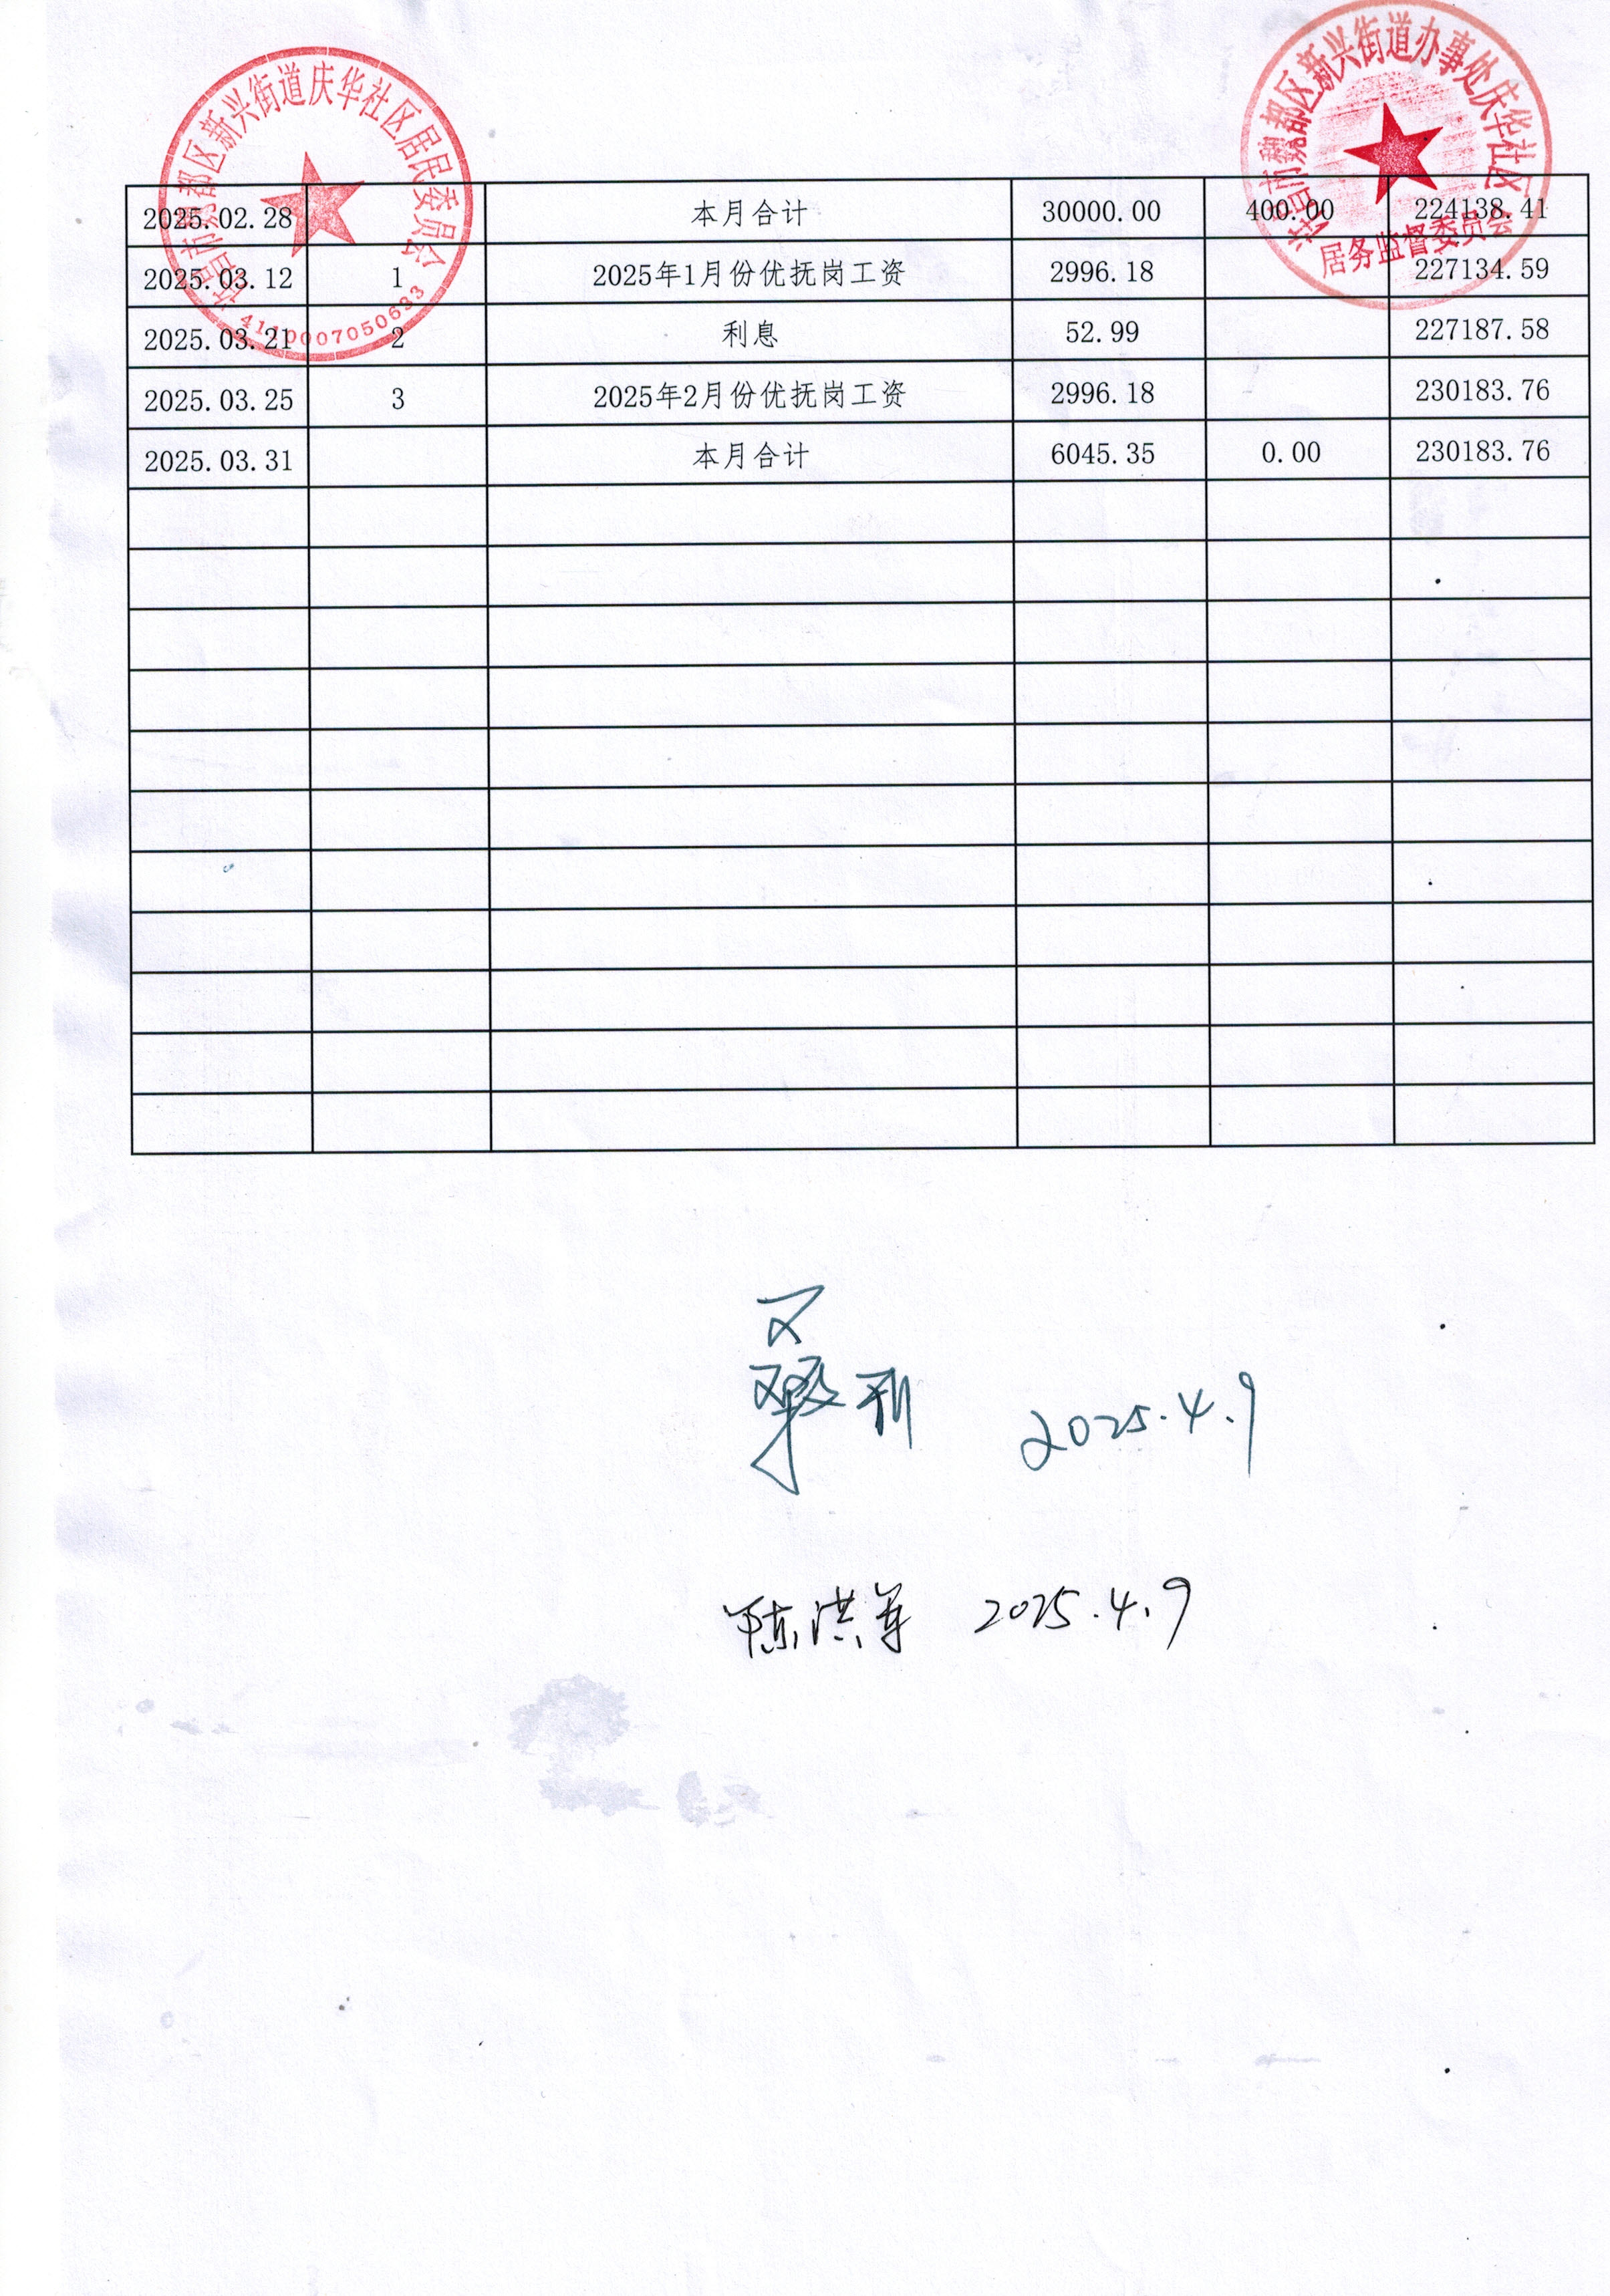 许昌市魏都区新兴街道庆华社区居民委员会
4110007050633
许昌市魏都区新兴街道办事处庆华社区
居务监督委员会
2025.02.28 本月合计 30000.00 400.00 224138.41
2025.03.12 1 2025年1月份优抚岗工资 2996.18 227134.59
2025.03.21 2 利息 52.99 227187.58
2025.03.25 3 2025年2月份优抚岗工资 2996.18 230183.76
2025.03.31 本月合计 6045.35 0.00 230183.76
桑利 2025.4.9
陈洪军 2025.4.9